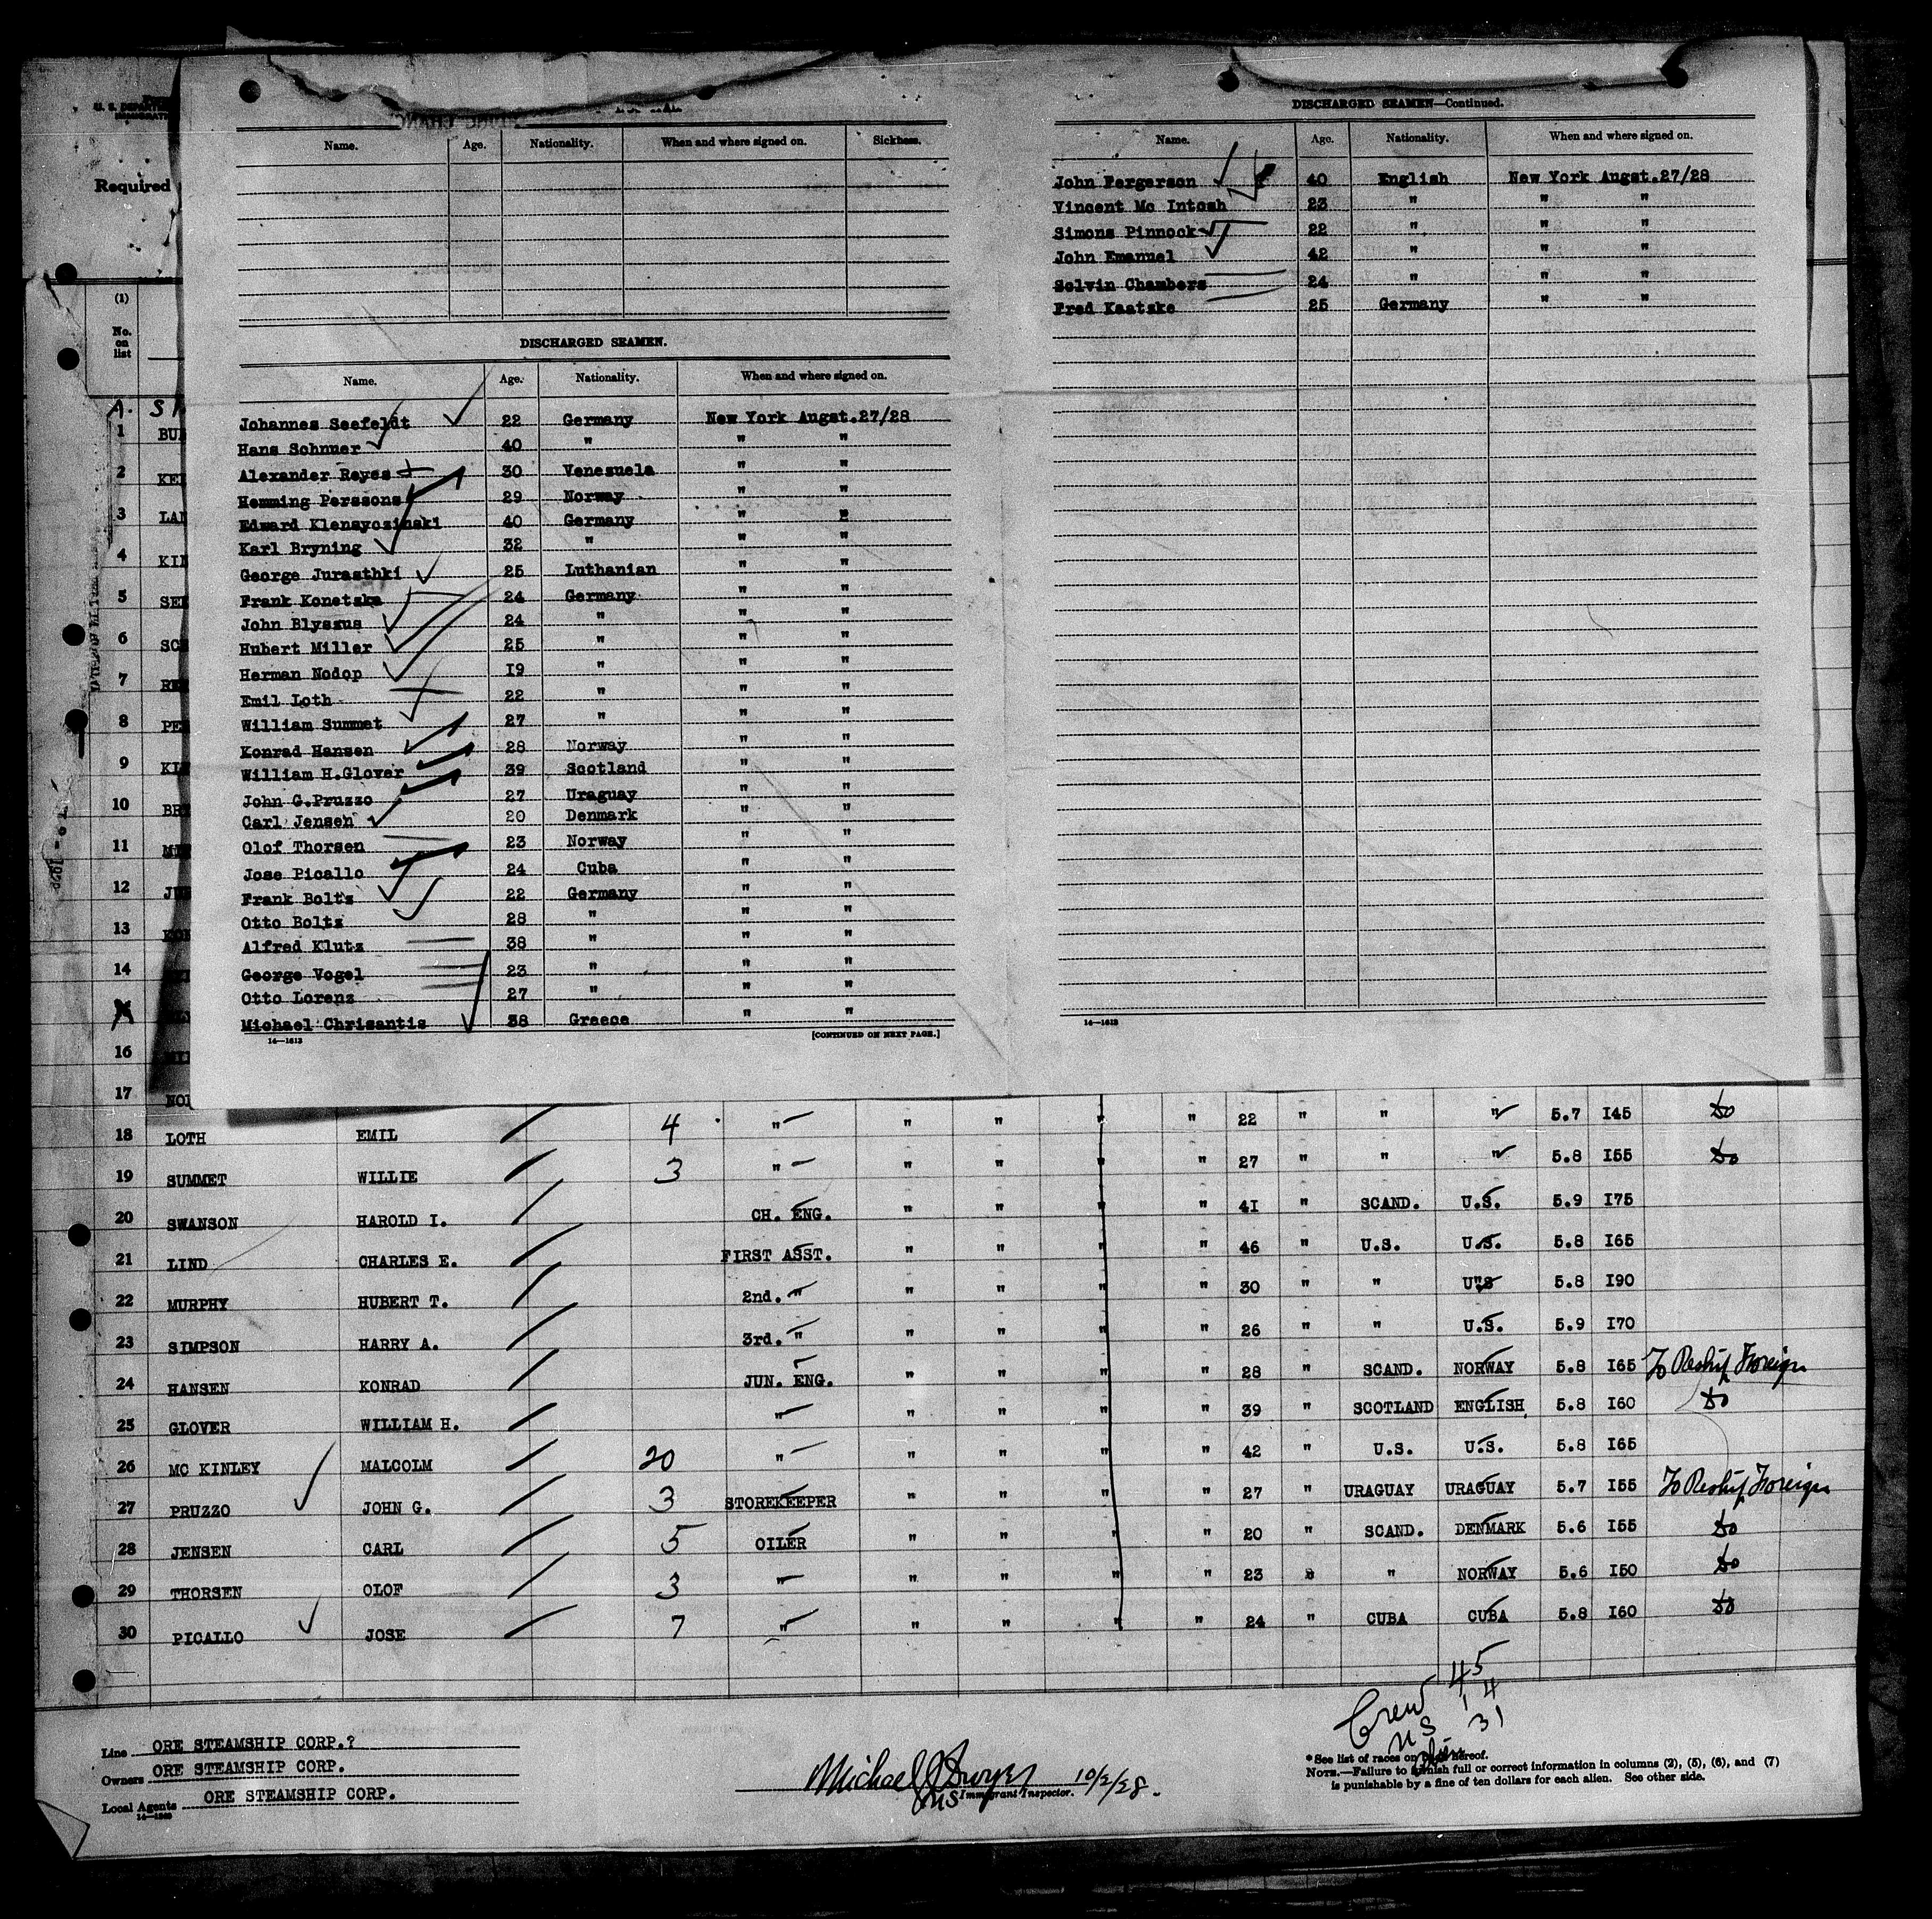 U. S. DEPARTM
IMMIGRAT
Required
(1)
No.
on
list
Name. Age. Nationality. When and where signed on. Sickness.
DISCHARGED SEAMEN.
Name. Age. Nationality. When and where signed on.
Johannes Seefeldt 22 Germany New York Augst.27/28
Hans Schnuer 40 " " "
Alexander Reyes 30 Venesuela " "
Hemming Perssons 29 Norway " "
Edward Klensyozinski 40 Germany " "
Karl Bryning 32 " " "
George Jurasthki 25 Luthanian " "
Frank Konetzka 24 Germany " "
John Blyszus 24 " " "
Hubert Miller 25 " " "
Herman Nodop 19 " " "
Emil Loth 22 " " "
William Summet 27 " " "
Konrad Hansen 28 Norway " "
William H.Glover 39 Scotland " "
John G.Pruzzo 27 Uraguay " "
Carl Jensen 20 Denmark " "
Olof Thorsen 23 Norway " "
Jose Picallo 24 Cuba " "
Frank Boltz 22 Germany " "
Otto Boltz 28 " " "
Alfred Klutz 38 " " "
George Vogel 23 " " "
Otto Lorenz 27 " " "
Michael Chrisantis 38 Greece " "
14—1613 [CONTINUED ON NEXT PAGE.]
DISCHARGED SEAMEN—Continued.
Name. Age. Nationality. When and where signed on.
John Fergerson 40 English New York Augst.27/28
Vincent Mc Intosh 23 " " "
Simons Pinnock 22 " " "
John Emanuel 42 " " "
Selvin Chambers 24 " " "
Fred Kaatzke 25 Germany " "
14—1613
1 BU
2 KE
3 LA
4 KI
5 SE
6 SC
7 RE
8 PE
9 KL
10 BR
11 MI
12 JU
13 KO
14
16
17 NO
" " " " " 22 " " " 5.7 I45 do
18 LOTH EMIL 4
19 SUMMET WILLIE 3 " " " " " 27 " " " 5.8 I55 do
20 SWANSON HAROLD I. CH. ENG. " " " " 41 " SCAND. U.S. 5.9 I75
21 LIND CHARLES E. FIRST ASST. " " " " 46 " U.S. U.S. 5.8 I65
22 MURPHY HUBERT T. 2nd. " " " " " 30 " " U"S 5.8 I90
23 SIMPSON HARRY A. 3rd. " " " " " 26 " " U.S. 5.9 I70
24 HANSEN KONRAD JUN. ENG. " " " " 28 " SCAND. NORWAY 5.8 I65 To Reship Foreign
25 GLOVER WILLIAM H. " " " " " 39 " SCOTLAND ENGLISH 5.8 I60 do
26 MC KINLEY MALCOLM 20 " " " " " 42 " U.S. U.S. 5.8 I65
27 PRUZZO JOHN G. 3 STOREKEEPER " " " " 27 " URAGUAY URAGUAY 5.7 I55 To Reship Foreign
28 JENSEN CARL 5 OILER " " " " 20 " SCAND. DENMARK 5.6 I55 do
29 THORSEN OLOF 3 " " " " " 23 " " NORWAY 5.6 I50 do
30 PICALLO JOSE 7 " " " " " 24 " CUBA CUBA 5.8 I60 do
Crew 45
US 14
31
Line ORE STEAMSHIP CORP.?
Owners ORE STEAMSHIP CORP.
Local Agents ORE STEAMSHIP CORP.
Michael J Dwyer 10/2/28.
US Immigrant Inspector.
* See list of races on hereof.
NOTE.—Failure to furnish full or correct information in columns (2), (5), (6), and (7)
is punishable by a fine of ten dollars for each alien. See other side.